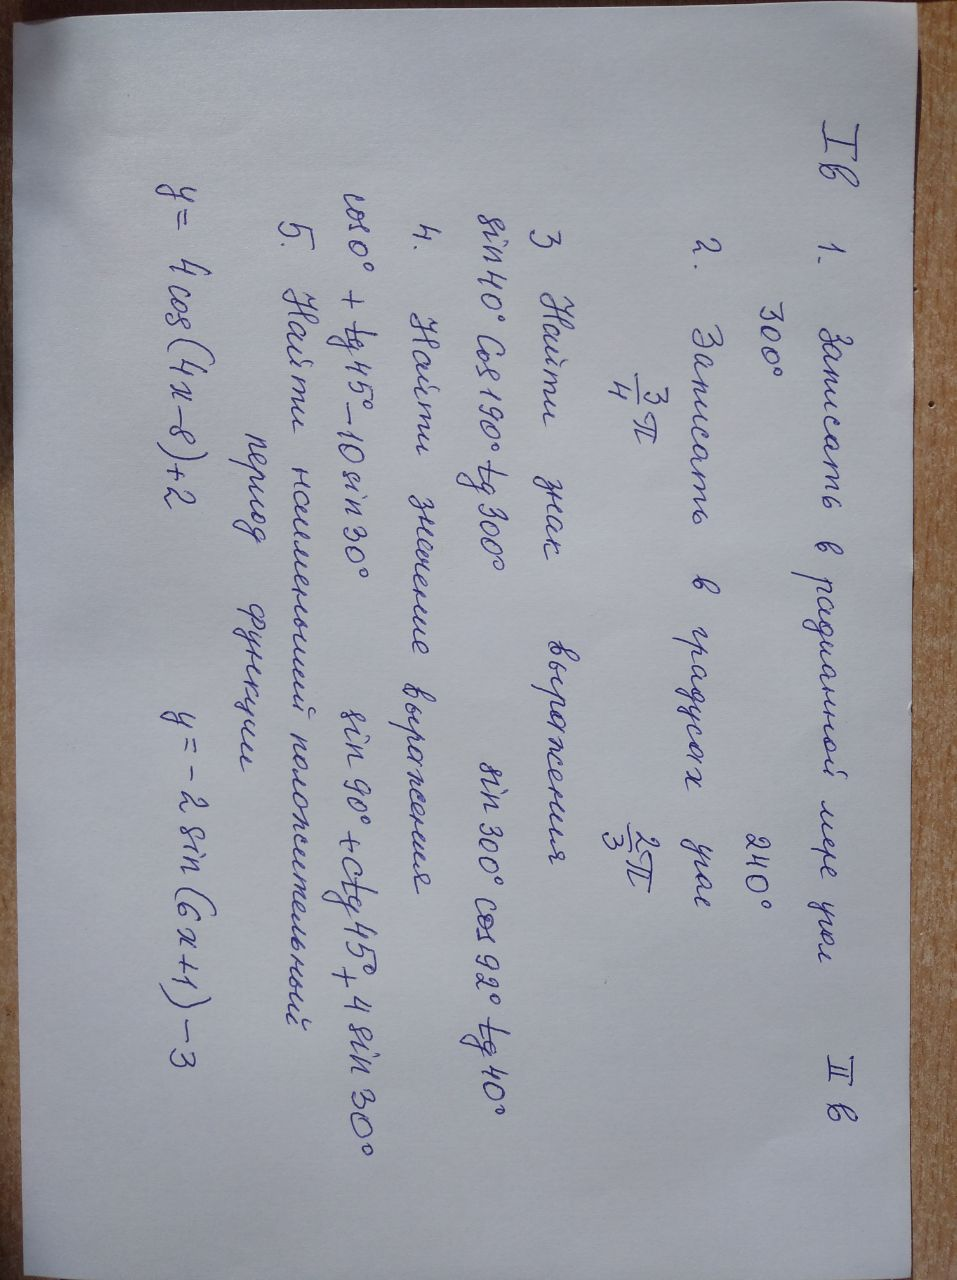 I в 1. Записать в радианной мере угол II в
300° 240°
2. Записать в градусах угол
3/4 π 2/3 π
3 Найти знак выражения
sin 40° Cos 190° tg 300° sin 300° cos 92° tg 40°
4. Найти значение выражения
cos 0° + tg 45° - 10 sin 30° sin 90° + ctg 45° + 4 sin 30°
5. Найти наименьший положительный
период функции
y = 4 cos (4x - 8) + 2 y = - 2 sin (6x + 1) - 3